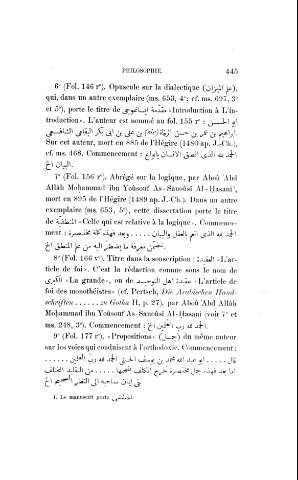 PHILOSOPHIE. 445
6° (Fol. 146 r°). Opuscule sur la dialectique (علم الميزان),
qui, dans un autre exemplaire (ms. 653, 4°; cf. ms. 697, 3°
et 5°), porte le titre de مقدمة ايساغوجى «Introduction à L'in-
troduction». L'auteur est nommé au fol. 155 r° :
ابرهيم بن عمر بن حسن الرباط بن على بن ابى بكر البقاعى الشافعى.
Sur cet auteur, mort en 885 de l'Hégire (1480 ap. J.-Ch.),
cf. ms. 468. Commencement : الحمد لله الذى انطق الانسان بانواع
البيان الخ.
7° (Fol. 156 r°). Abrégé sur la logique, par Aboû ʿAbd
Allâh Mohammad ibn Yoûsouf As-Sanoûsî Al-Ḥasanî,
mort en 895 de l'Hégire (1489 ap. J.-Ch.). Dans un autre
exemplaire (ms. 653, 5°), cette dissertation porte le titre
de المنطقية «Celle qui est relative à la logique». Commence-
ment : الحمد لله الذى انعم بالعقل والبيان ..... وبعد فهذه كلمة مختصرة
تتضمن معرفة ما يضطر اليه من علم المنطق الخ.
8° (Fol. 166 v°). Titre dans la souscription : العقيدة «L'ar-
ticle de foi». C'est la rédaction connue sous le nom de
الكبرى «La grande», ou de عقيدة اهل التوحيد «L'article de
foi des monothéistes» (cf. Pertsch, Die Arabischen Hand-
schriften ...... zu Gotha II, p. 27), par Aboû ʿAbd Allâh
Moḥammad ibn Yoûsouf As-Sanoûsî Al-Ḥasanî (voir 7° et
ms. 248, 3°). Commencement : الحمد لله رب العلمين الخ.
9° (Fol. 177 r°). «Propositions» (جمل) du même auteur
sur les voies qui conduisent à l'orthodoxie. Commencement :
قال ..... ابو عبد الله محمد بن يوسف الحسنى الحمد لله رب العلمين .....
اما بعد فهذه جمل مختصرة تخرج المكلف بفهمها ..... من التقليد المختلف
فى ايمان صاحبه الى النظر الصحيح الخ
1. Le manuscrit porte